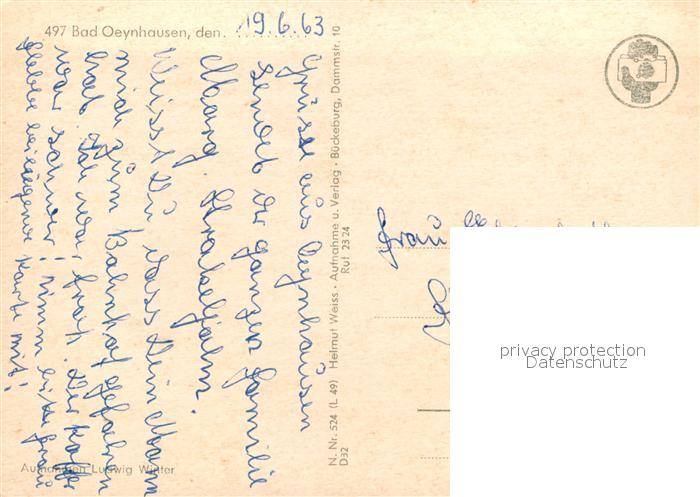 497 Bad Oeynhausen, den 19.6.63
Grüsse aus Oeynhausen
sendet der ganzen Familie
Marg.
Weisst Du, dass Dein Mann
mich zum Bahnhof gefahren
hat. Ich war froh. Der Koffer
war schwer! Nimm bitte
beiliegende Karte mit!
Aufnahmen Ludwig Winter
N. Nr. 524 (L 49) Helmut Weiss · Aufnahme u. Verlag · Bückeburg, Dammstr. 10
D32 Ruf 23 24
Frau
privacy protection
Datenschutz